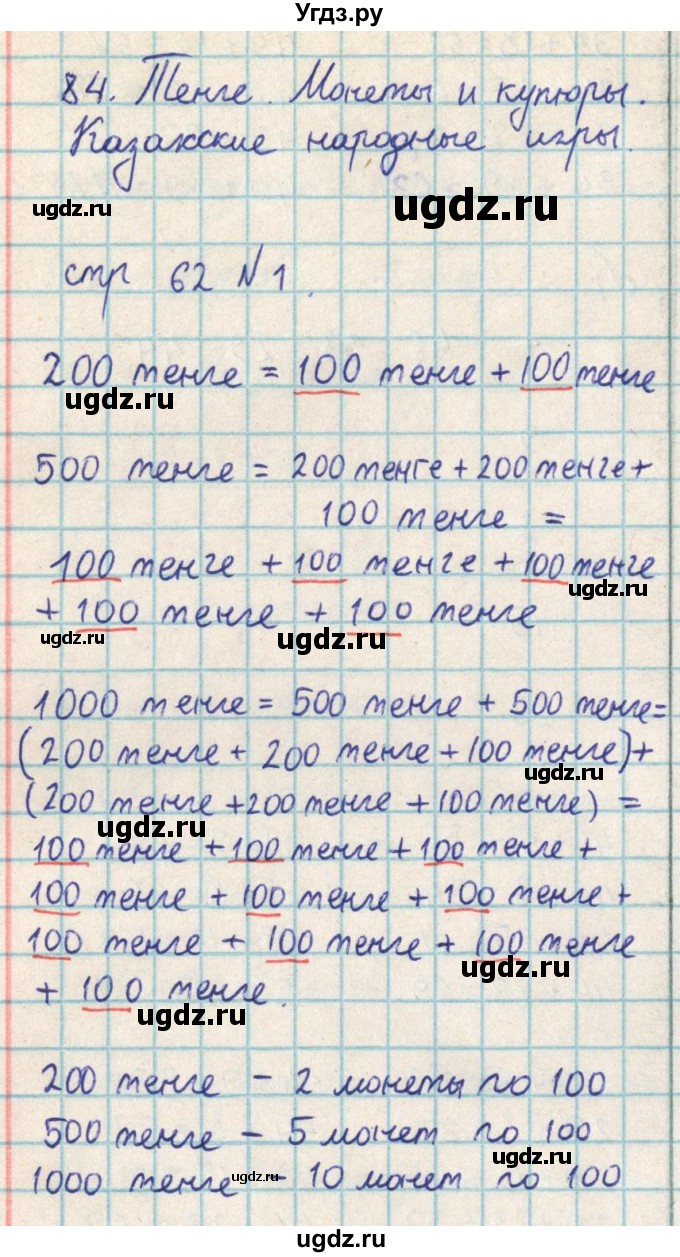 Угдз.ру
84. Тенге. Монеты и купюры.
Казахские народные игры.
ugdz.ru
ugdz.ru
стр 62 N 1.
200 тенге = 100 тенге + 100 тенге
ugdz.ru
500 тенге = 200 тенге + 200 тенге +
100 тенге =
100 тенге + 100 тенге + 100 тенге
ugdz.ru
+ 100 тенге + 100 тенге
ugdz.ru
ugdz.ru
1000 тенге = 500 тенге + 500 тенге =
(200 тенге + 200 тенге + 100 тенге) +
ugdz.ru
(200 тенге + 200 тенге + 100 тенге) =
ugdz.ru
100 тенге + 100 тенге + 100 тенге +
100 тенге + 100 тенге + 100 тенге +
100 тенге + 100 тенге + 100 тенге
ugdz.ru
+ 100 тенге.
ugdz.ru
200 тенге - 2 монеты по 100
500 тенге - 5 монет по 100
ugdz.ru
1000 тенге - 10 монет по 100
ugdz.ru
ugdz.ru